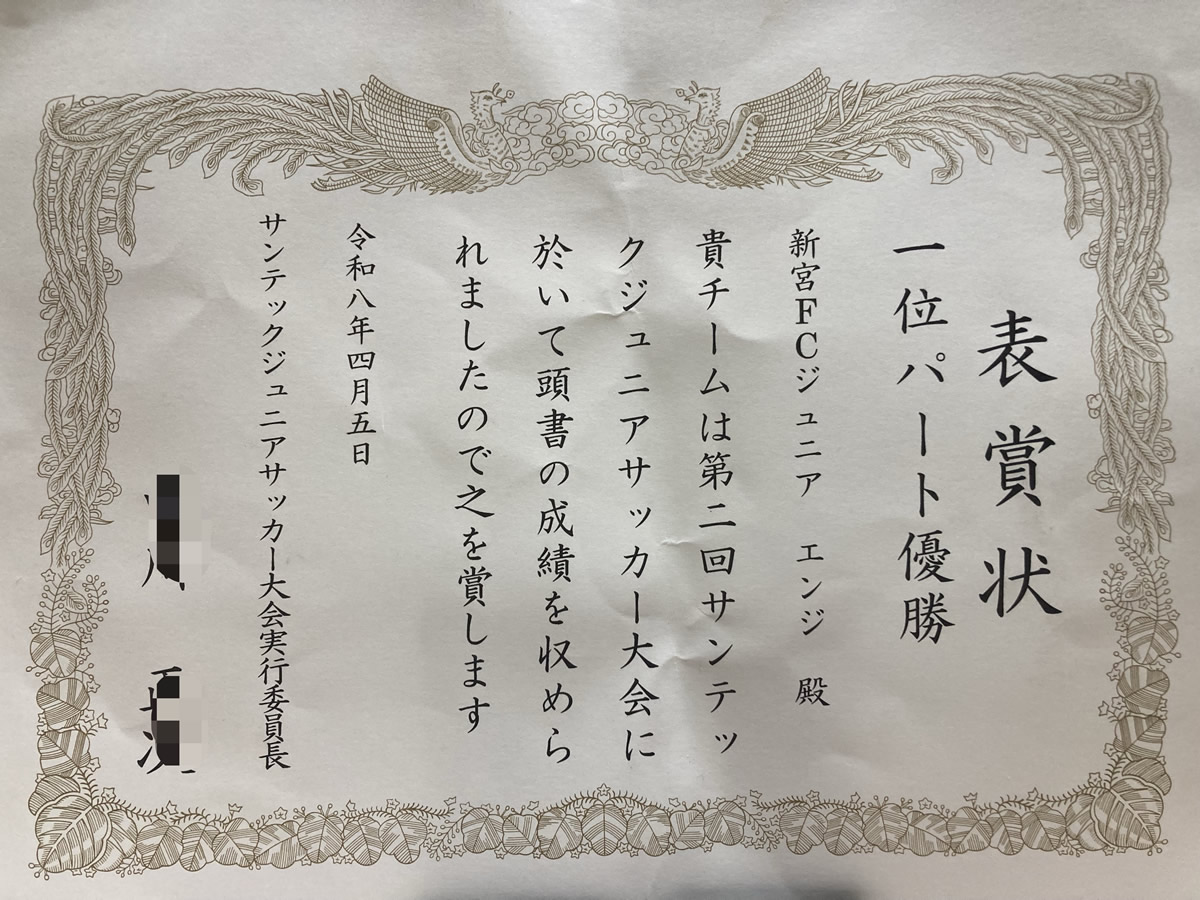 表賞状
一位パート優勝
新宮FCジュニア　エンジ　殿
貴チームは第二回サンテッ
クジュニアサッカー大会に
於いて頭書の成績を収めら
れましたので之を賞します
令和八年四月五日
サンテックジュニアサッカー大会実行委員長